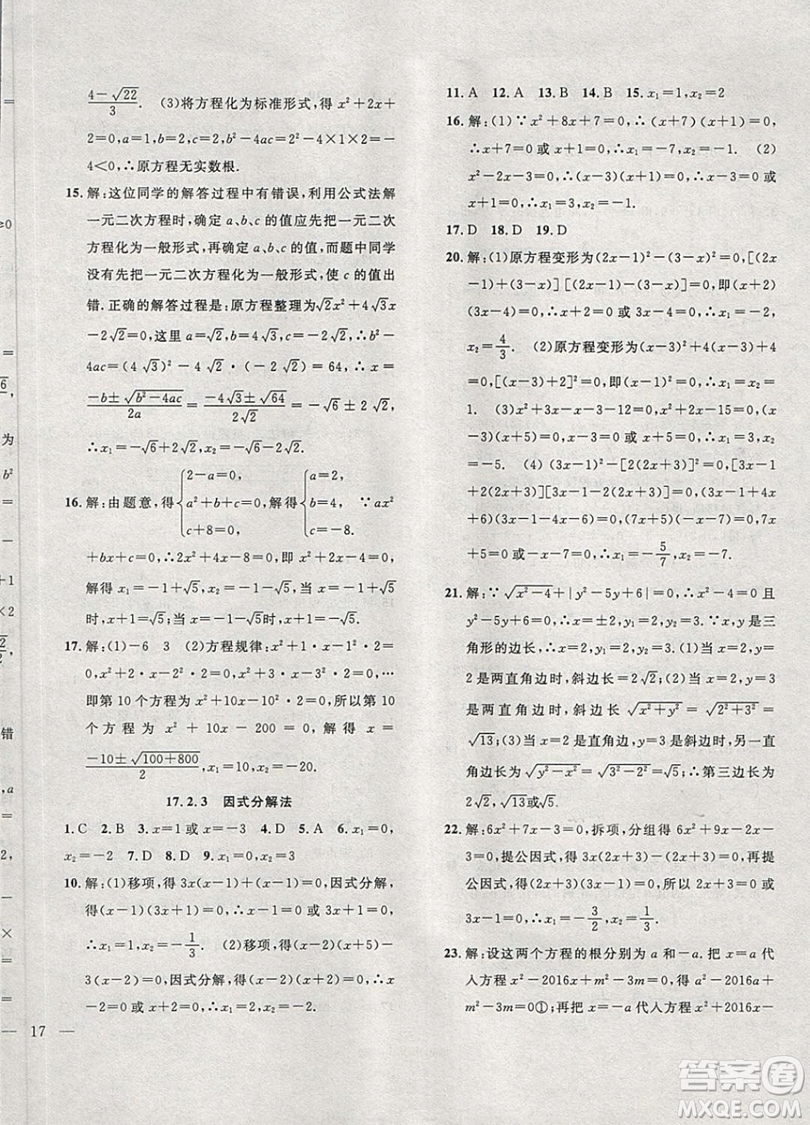 (4-√22)/3. (3)将方程化为标准形式,得 x²+2x+
2=0,a=1,b=2,c=2,b²-4ac=2²-4×1×2=
-4<0,∴原方程无实数根.
15. 解:这位同学的解答过程中有错误,利用公式法解
一元二次方程时,确定 a、b、c 的值应先把一元二次
方程化为一般形式,再确定 a、b、c 的值,而题中同学
没有先把一元二次方程化为一般形式,致使 c 的值出
错. 正确的解答过程是:原方程整理为√2x²+4√3x
-2√2=0,这里 a=√2,b=4√3,c=-2√2,∴b²-
4ac=(4√3)²-4×√2×(-2√2)=64,∴x=
(-b±√(b²-4ac))/2a=(-4√3±√64)/2√2=-√6±2√2,
∴x₁=-√6+2√2,x₂=-√6-2√2.
16. 解:由题意,得{2-a=0,a²+b+c=0,c+8=0. 解得{a=2,b=4,c=-8. ∵ax²
+bx+c=0,即 2x²+4x-8=0,即 x²+2x-4=0,
解得 x₁=-1+√5,x₂=-1-√5,当 x=-1±√5
时,x²+2x-4=0,∴x=-1±√5.
17. 解:(1)-6 3 (2)方程规律:x²+1·x-1²·2=
0,x²+2·x-2²·2=0,x²+3·x-3²·2=0,…
即第 10 个方程为 x²+10·x-10²·2=0,所以第 10
个方程为 x²+10x-200=0,解得 x=
(-10±√(100+800))/2,∴x₁=-20,x₂=10.
17.2.3 因式分解法
1. C 2. B 3. x=1或x=3 4. D 5. A 6. x₁=0,
x₂=-2 7. D 8. D 9. x₁=0,x₂=3
10. 解:(1)移项,得 3x(x-1)+(x-1)=0,因式分解,
得(x-1)(3x+1)=0,∴x-1=0 或 3x+1=0,
∴x₁=1,x₂=-1/3. (2)移项,得(x+5)(x+5)-
3(x+5)=0,因式分解,得(x+5)(x+5-3)=0,
∴x+5=0 或 x+2=0,∴x₁=-5,x₂=-2.
17
11. A 12. A 13. B 14. B 15. x₁=1,x₂=2
16. 解:(1)∵x²+8x+7=0,∴(x+7)(x+1)=0,
∴x+7=0 或 x+1=0,∴x₁=-7,x₂=-1. (2)
x(x²-1)=0,∴x(x+1)=0,∴x=0 或
x+1=0,∴x₁=0,x₂=-1.
17. D 18. D 19. D
20. 解:(1)原方程变形为(2x-1)²-(3-x)²=0,[(2x
-1)+(3-x)][(2x-1)-(3-x)]=0,即(x+2)
(3x-4)=0,∴x+2=0 或 3x-4=0,∴x₁=-2,
x₂=4/3. (2)原方程变形为(x-3)²+4(x-3)+4
=0,∴(x-3+2)²=0,即(x-1)²=0,∴x₁=x₂=
1. (3)x²+4x-5=0,∴(x-1)(x+5)=0,∴x₁=1,x₂
=-5. (4)(2x+3)²-[2(2x-1)]²=0,[(2x
+3)+2(2x-1)][(2x+3)-2(2x-1)]=0,
(6x+1)(-2x+5)=0
21. 解:∵√(x²-4)+|y²-5y+6|=0,∴x²-4=0 且
y²-5y+6=0,∴x=2,y=2 或 3;∵x、y 是直角三
角形的边长,∴分以下情况:(1)当 x=2,y=2
是两直角边时,斜边长为 2√2;(2)当 x=2,y=3
是两直角边时,斜边长为√(x²+y²)=√(2²+3²)=
√13;(3)当 x=2 是直角边,y=3 是斜边时,另一直
角边长为√(y²-x²)=√(3²-2²)=√5,∴第三边长为
2√2,√13或√5.
22. 解:6x²+7x-3=0,拆项,分组得 6x²+9x-2x-3
=0,提公因式,得 3x(2x+3)-(2x+3)=0,再提
公因式,得(2x+3)(3x-1)=0,∴2x+3=0 或
3x-1=0,∴x₁=-3/2,x₂=1/3.
23. 解:设这两个方程的根分别为 a 和-a. 把 x=a 代
入方程 x²-2016x+m²-3m=0,得 a²-2016a+
m²-3m=0①;再把 x=a代入方程 x²+2016x-
答案圈
MXQE.COM